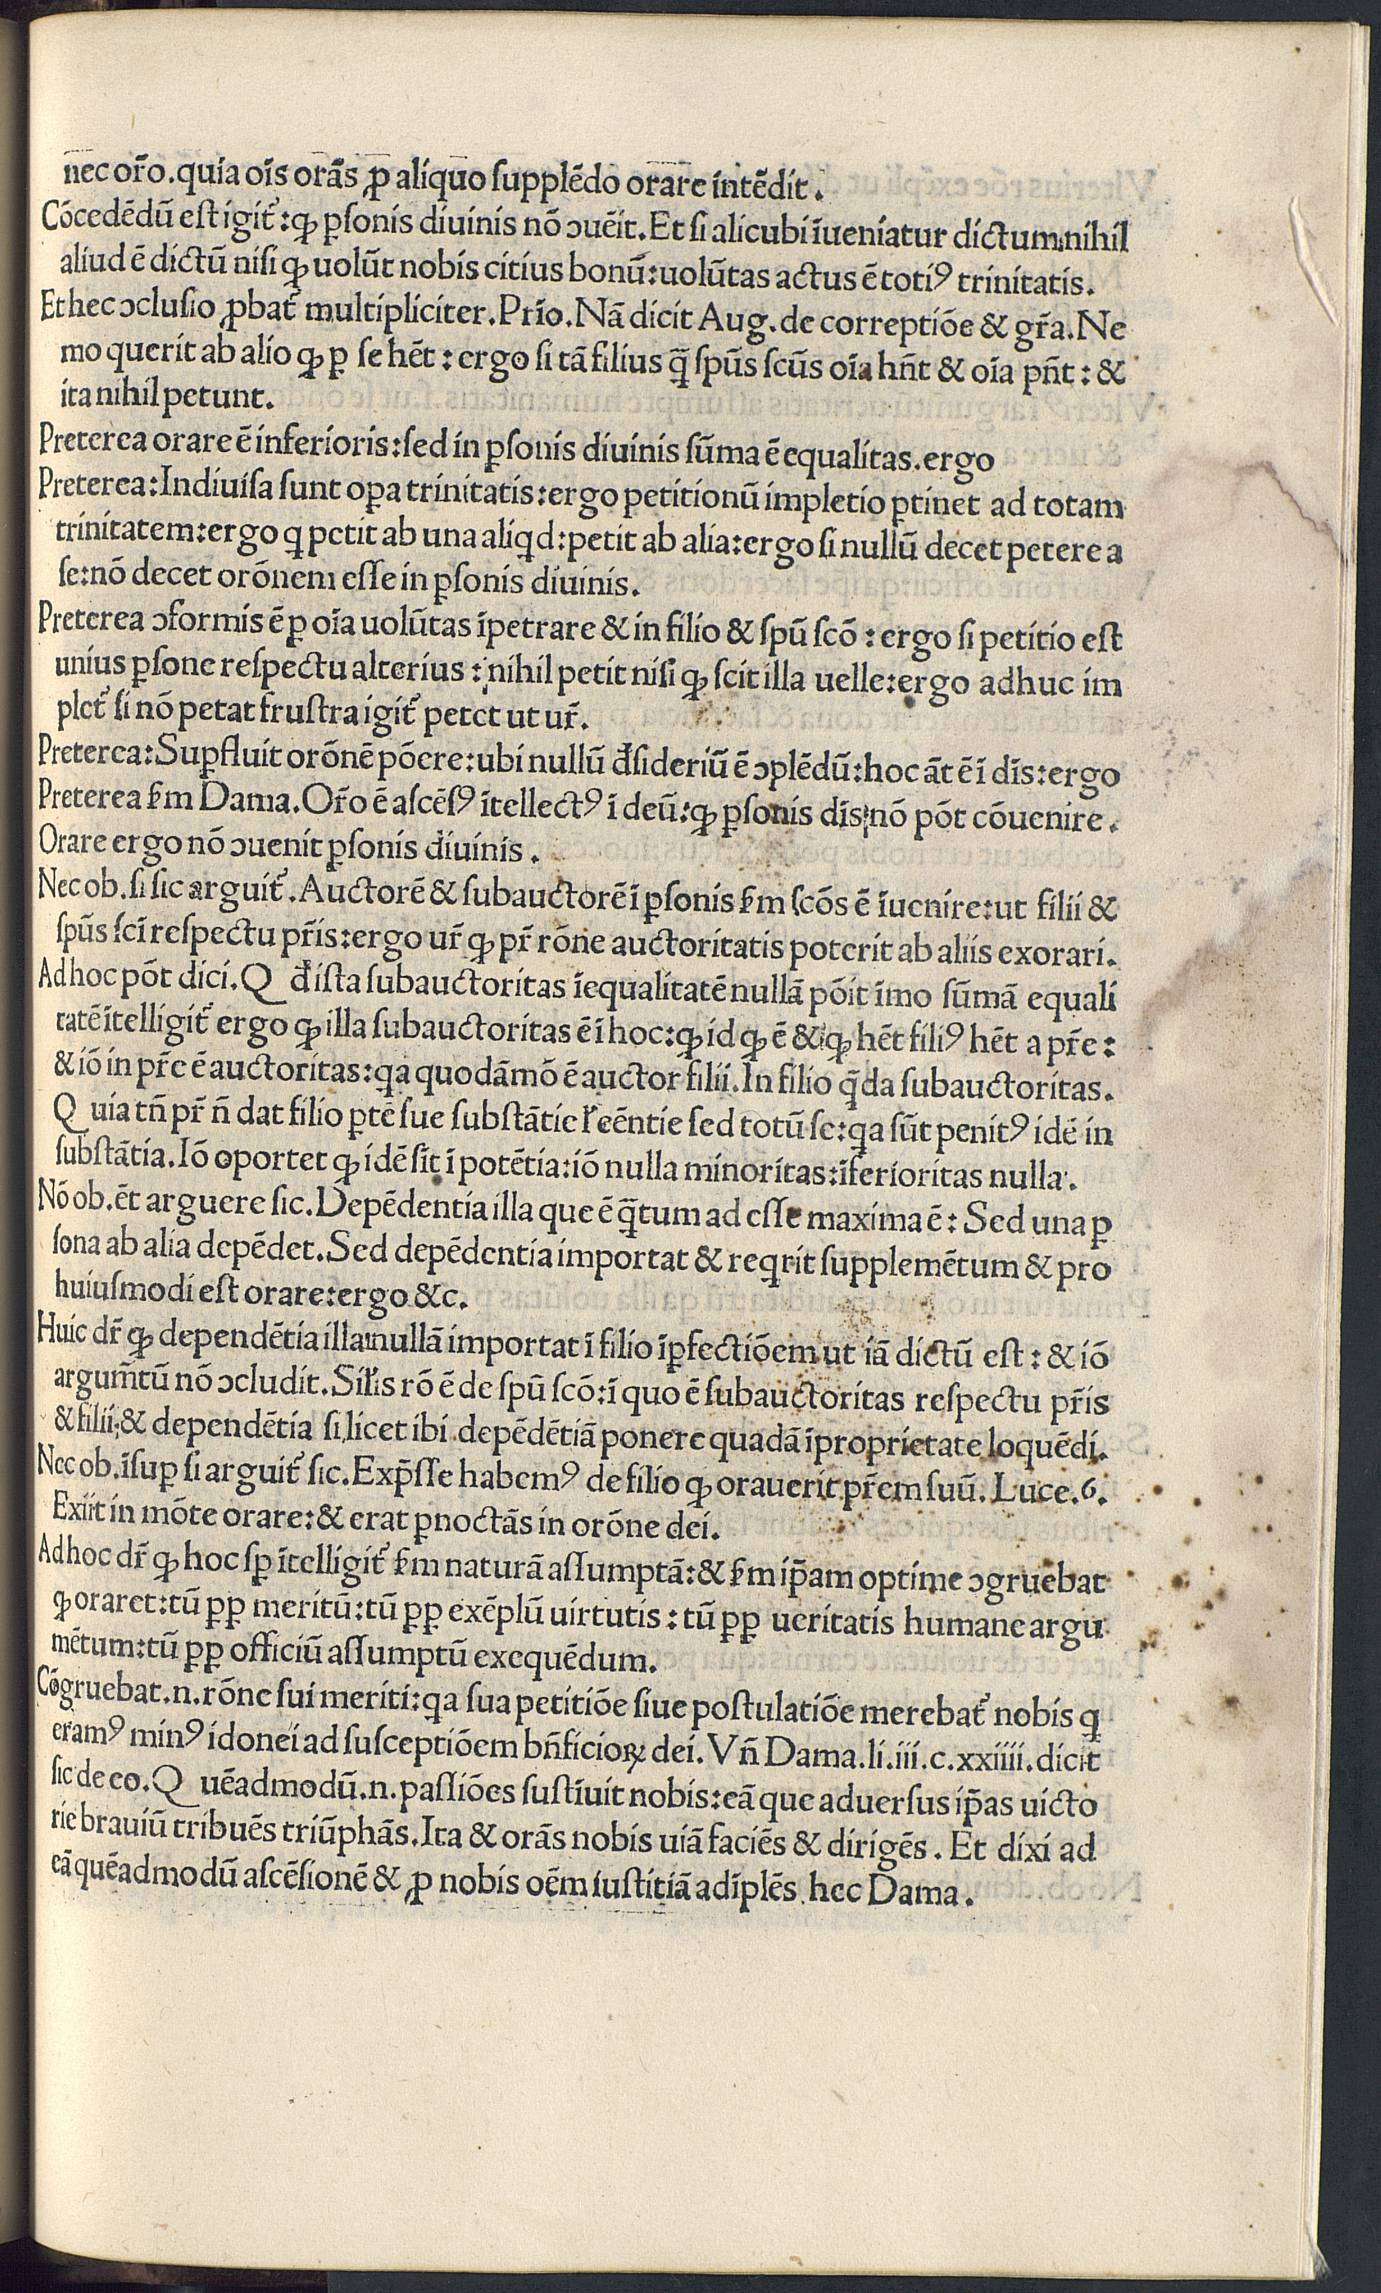 nec or̃o.quia oı̃s orãs ꝓ aliquo supplẽdo orare intẽdit.
Cõcedẽdũ est igit᷑:ꝙ ꝑsonis diuinis nõ ↄuẽit.Et si alicubi ĩueniatur dictum:nihil
aliud ẽ dictũ nisi ꝙ uolũt nobis citius bonũ:uolũtas actus ẽ totiꝰ trinitatis.
Et hec ↄclusio ꝓbat᷑ multipliciter.Prĩo.Nã dicit Aug.de correptiõe & gr̃a.Ne
mo querit ab alio ꝙ ꝑ se hẽt:ergo si tã filius q̃ spũs scũs oı̃a hñt & oı̃a pñt:&
ita nihil petunt.
Preterea orare ẽ inferioris:sed in ꝑsonis diuinis sũma ẽ equalitas.ergo
Preterea:Indiuisa sunt oꝑa trinitatis:ergo petitionũ impletio ꝑtinet ad totam
trinitatem:ergo q petit ab una aliqd:petit ab alia:ergo si nullũ decet petere a
se:nõ decet orõnem esse in ꝑsonis diuinis.
Preterea ↄformis ẽ ꝑ oı̃a uolũtas ĩpetrare & in filio & spũ scõ:ergo si petitio est
unius ꝑsone respectu alterius:nihil petit nisi ꝙ scit illa uelle:ergo adhuc im
plet᷑ si nõ petat frustra igit᷑ petet ut ur̃.
Preterea:Suꝑfluit orõnẽ põere:ubi nullũ d̃sideriũ ẽ ↄplẽdũ:hoc ãt ẽ ĩ dı̃s:ergo
Preterea ẜm Dama.Or̃o ẽ ascẽsꝰ ĩtellectꝰ ĩ deũ:ꝙ ꝑsonis dı̃s nõ põt cõuenire.
Orare ergo nõ ↄuenit ꝑsonis diuinis.
Nec ob.si sic arguit᷑.Auctorẽ & subauctorẽ ĩ ꝑsonis ẜm scõs ẽ ĩuenire:ut filii &
spũs scĩ respectu pr̃is:ergo ur̃ ꝙ pr̃ rõne auctoritatis poterit ab aliis exorari.
Ad hoc põt dici.Q đ ista subauctoritas ĩequalitatẽ nullã põit ĩmo sũmã equali
tatẽ ĩtelligit᷑ ergo ꝙ illa subauctoritas ẽ ĩ hoc:ꝙ id ꝙ ẽ & ꝙ hẽt filiꝰ hẽt a pr̃e:
& iõ in pr̃e ẽ auctoritas:qa quodãmõ ẽ auctor filii.In filio q̃da subauctoritas.
Q uia tñ pr̃ ñ dat filio ꝑtẽ sue substãtie ł eẽntie sed totũ se:qa sũt penitꝰ idẽ in
substãtia.Iõ oportet ꝙ idẽ sĩt ĩ potẽtia:iõ nulla minoritas:ĩferioritas nulla.
Nõ ob.ẽt arguere sic.Depẽdentia illa que ẽ q̃tum ad esse maxima ẽ:Sed una ꝑ
sona ab alia depẽdet.Sed depẽdentia importat & reqrit supplemẽtum & pro
huiusmodi est orare:ergo &c.
Huic dr̃ ꝙ dependẽtia illa nullã importat ĩ filio ĩꝑfectiõem ut iã dictũ est:& iõ
argum̃tũ nõ ↄcludit.Sil̃is rõ ẽ de spũ scõ:ĩ quo ẽ subauctoritas respectu pr̃is
& filii:& dependẽtia si licet ibi depẽdẽtiã ponere quadã ĩproprietate loquẽdi.
Nec ob.ĩsuꝑ si arguit᷑ sic.Exp̃sse habemꝰ de filio ꝙ orauerit pr̃em suũ.Luce.6.
Exiit in mõte orare:& erat ꝑnoctãs in orõne dei.
Ad hoc dr̃ ꝙ hoc sꝑ ĩtelligit᷑ ẜm naturã assumptã:& ẜm ip̃am optime ↄgruebat
ꝙ oraret:tũ ꝑp meritũ:tũ ꝑp exẽplũ uirtutis:tũ ꝑp ueritatis humane argu
mẽtum:tũ ꝑp officiũ assumptũ exequẽdum.
Cõgruebat.n.rõne sui meriti:qa sua petitiõe siue postulatiõe merebat᷑ nobis q
eramꝰ minꝰ idonei ad susceptiõem bñficioꝝ dei.Vñ Dama.li.iii.c.xxiiii.dicit
sic de eo.Q uẽadmodũ.n.passiões sustĩuit nobis:eã que aduersus ip̃as uicto
rie brauiũ tribuẽs triũphãs.Ita & orãs nobis uiã faciẽs & dirigẽs.Et dixi ad
eã quẽadmodũ ascẽsionẽ & ꝓ nobis oẽm iustitiã adĩplẽs hec Dama.